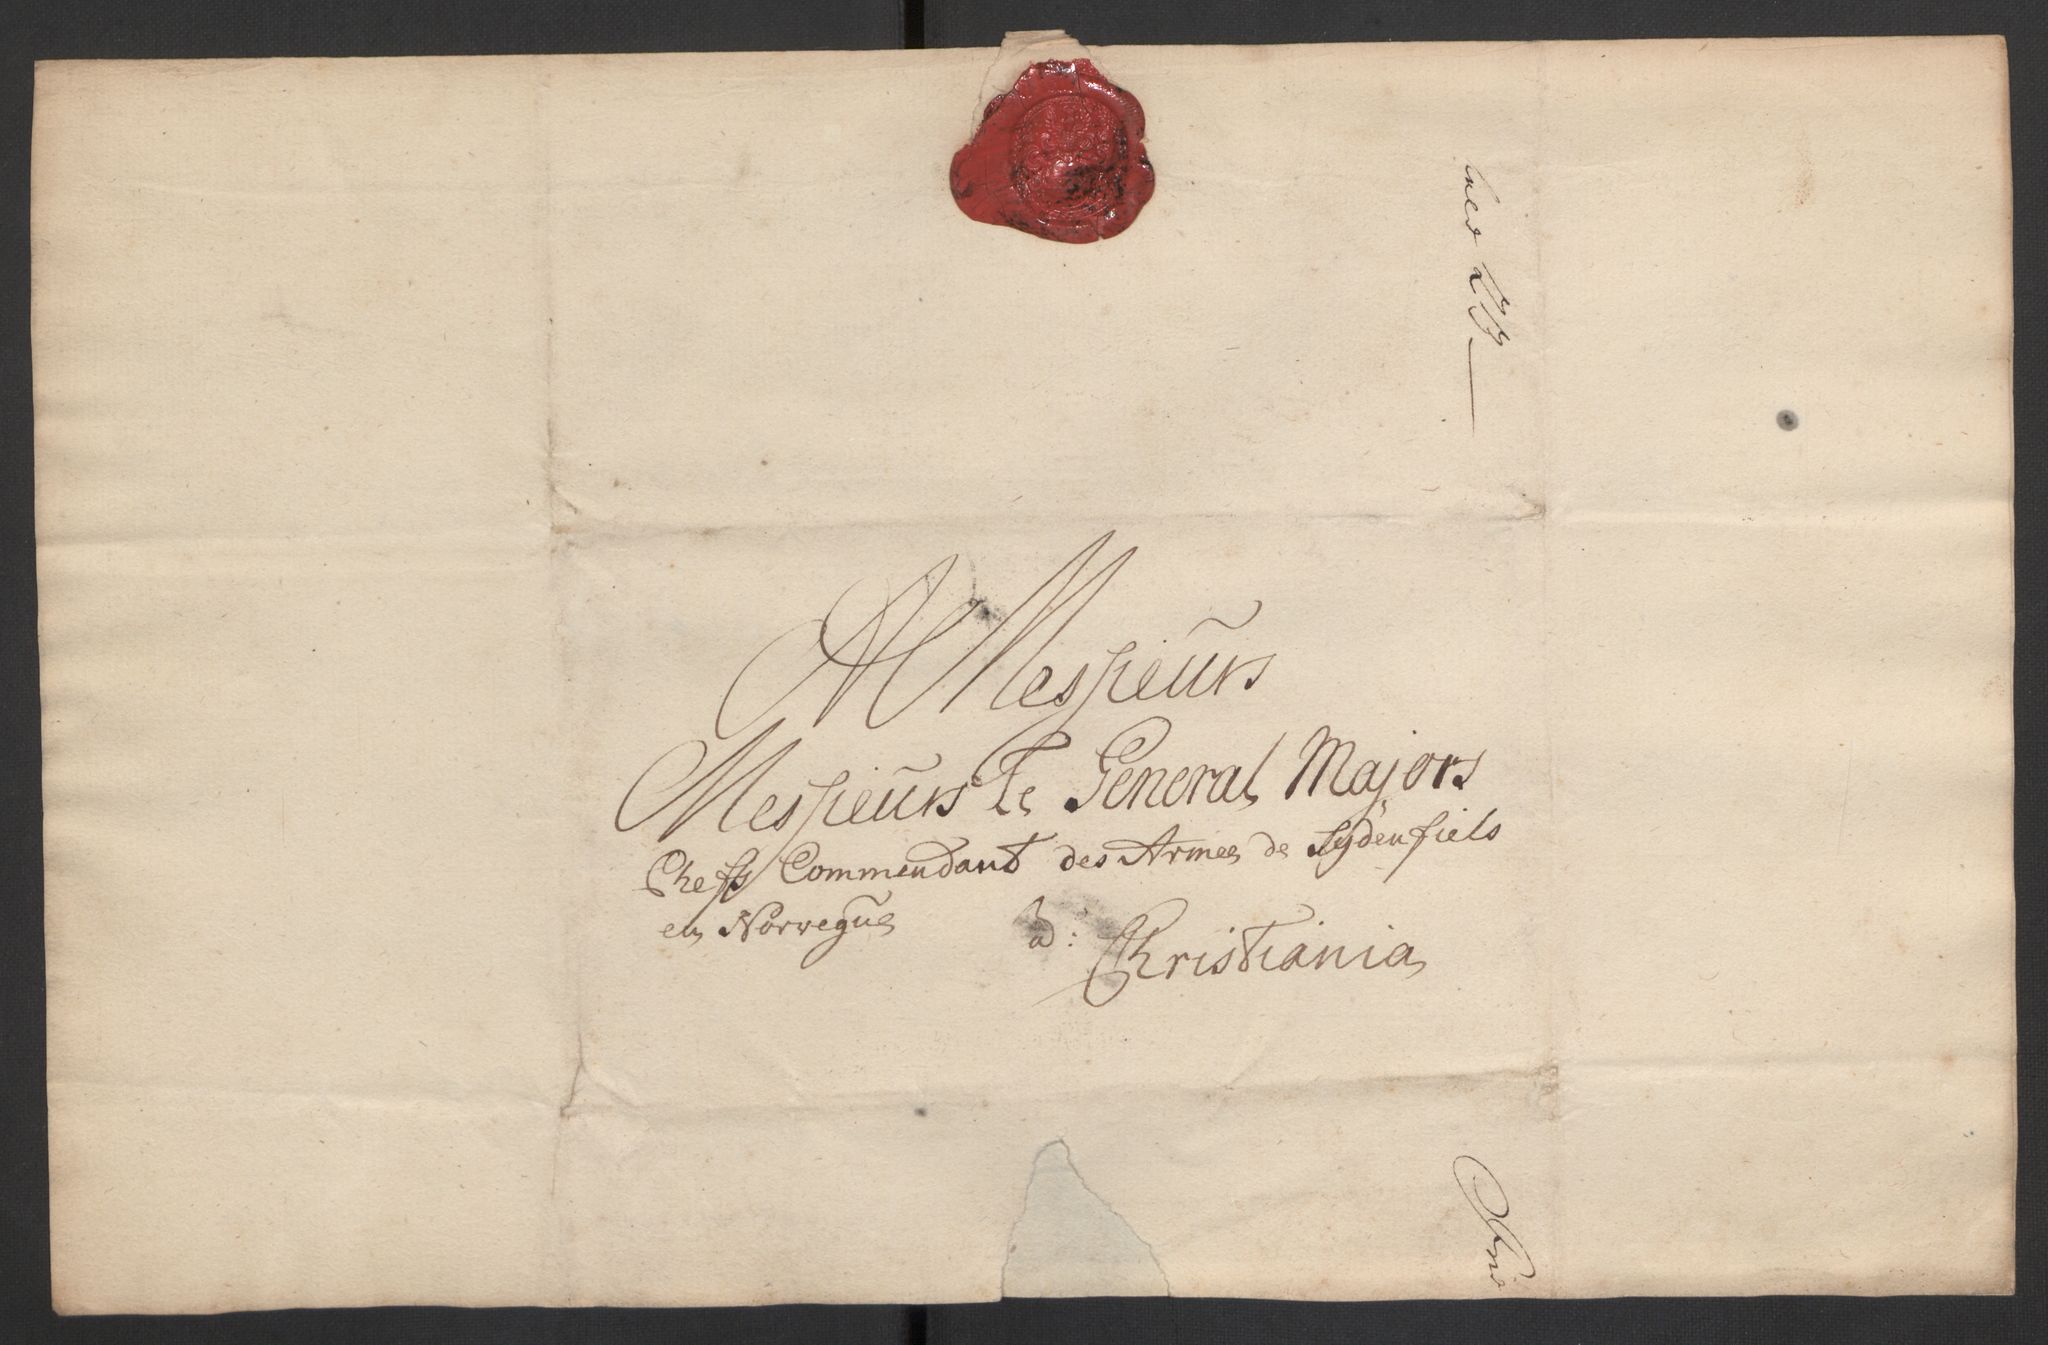 A Messieurs
Messieurs Le General Majors
Chefs Commendant des Armee de Sydenfiels
en Norvegue a: Christiania